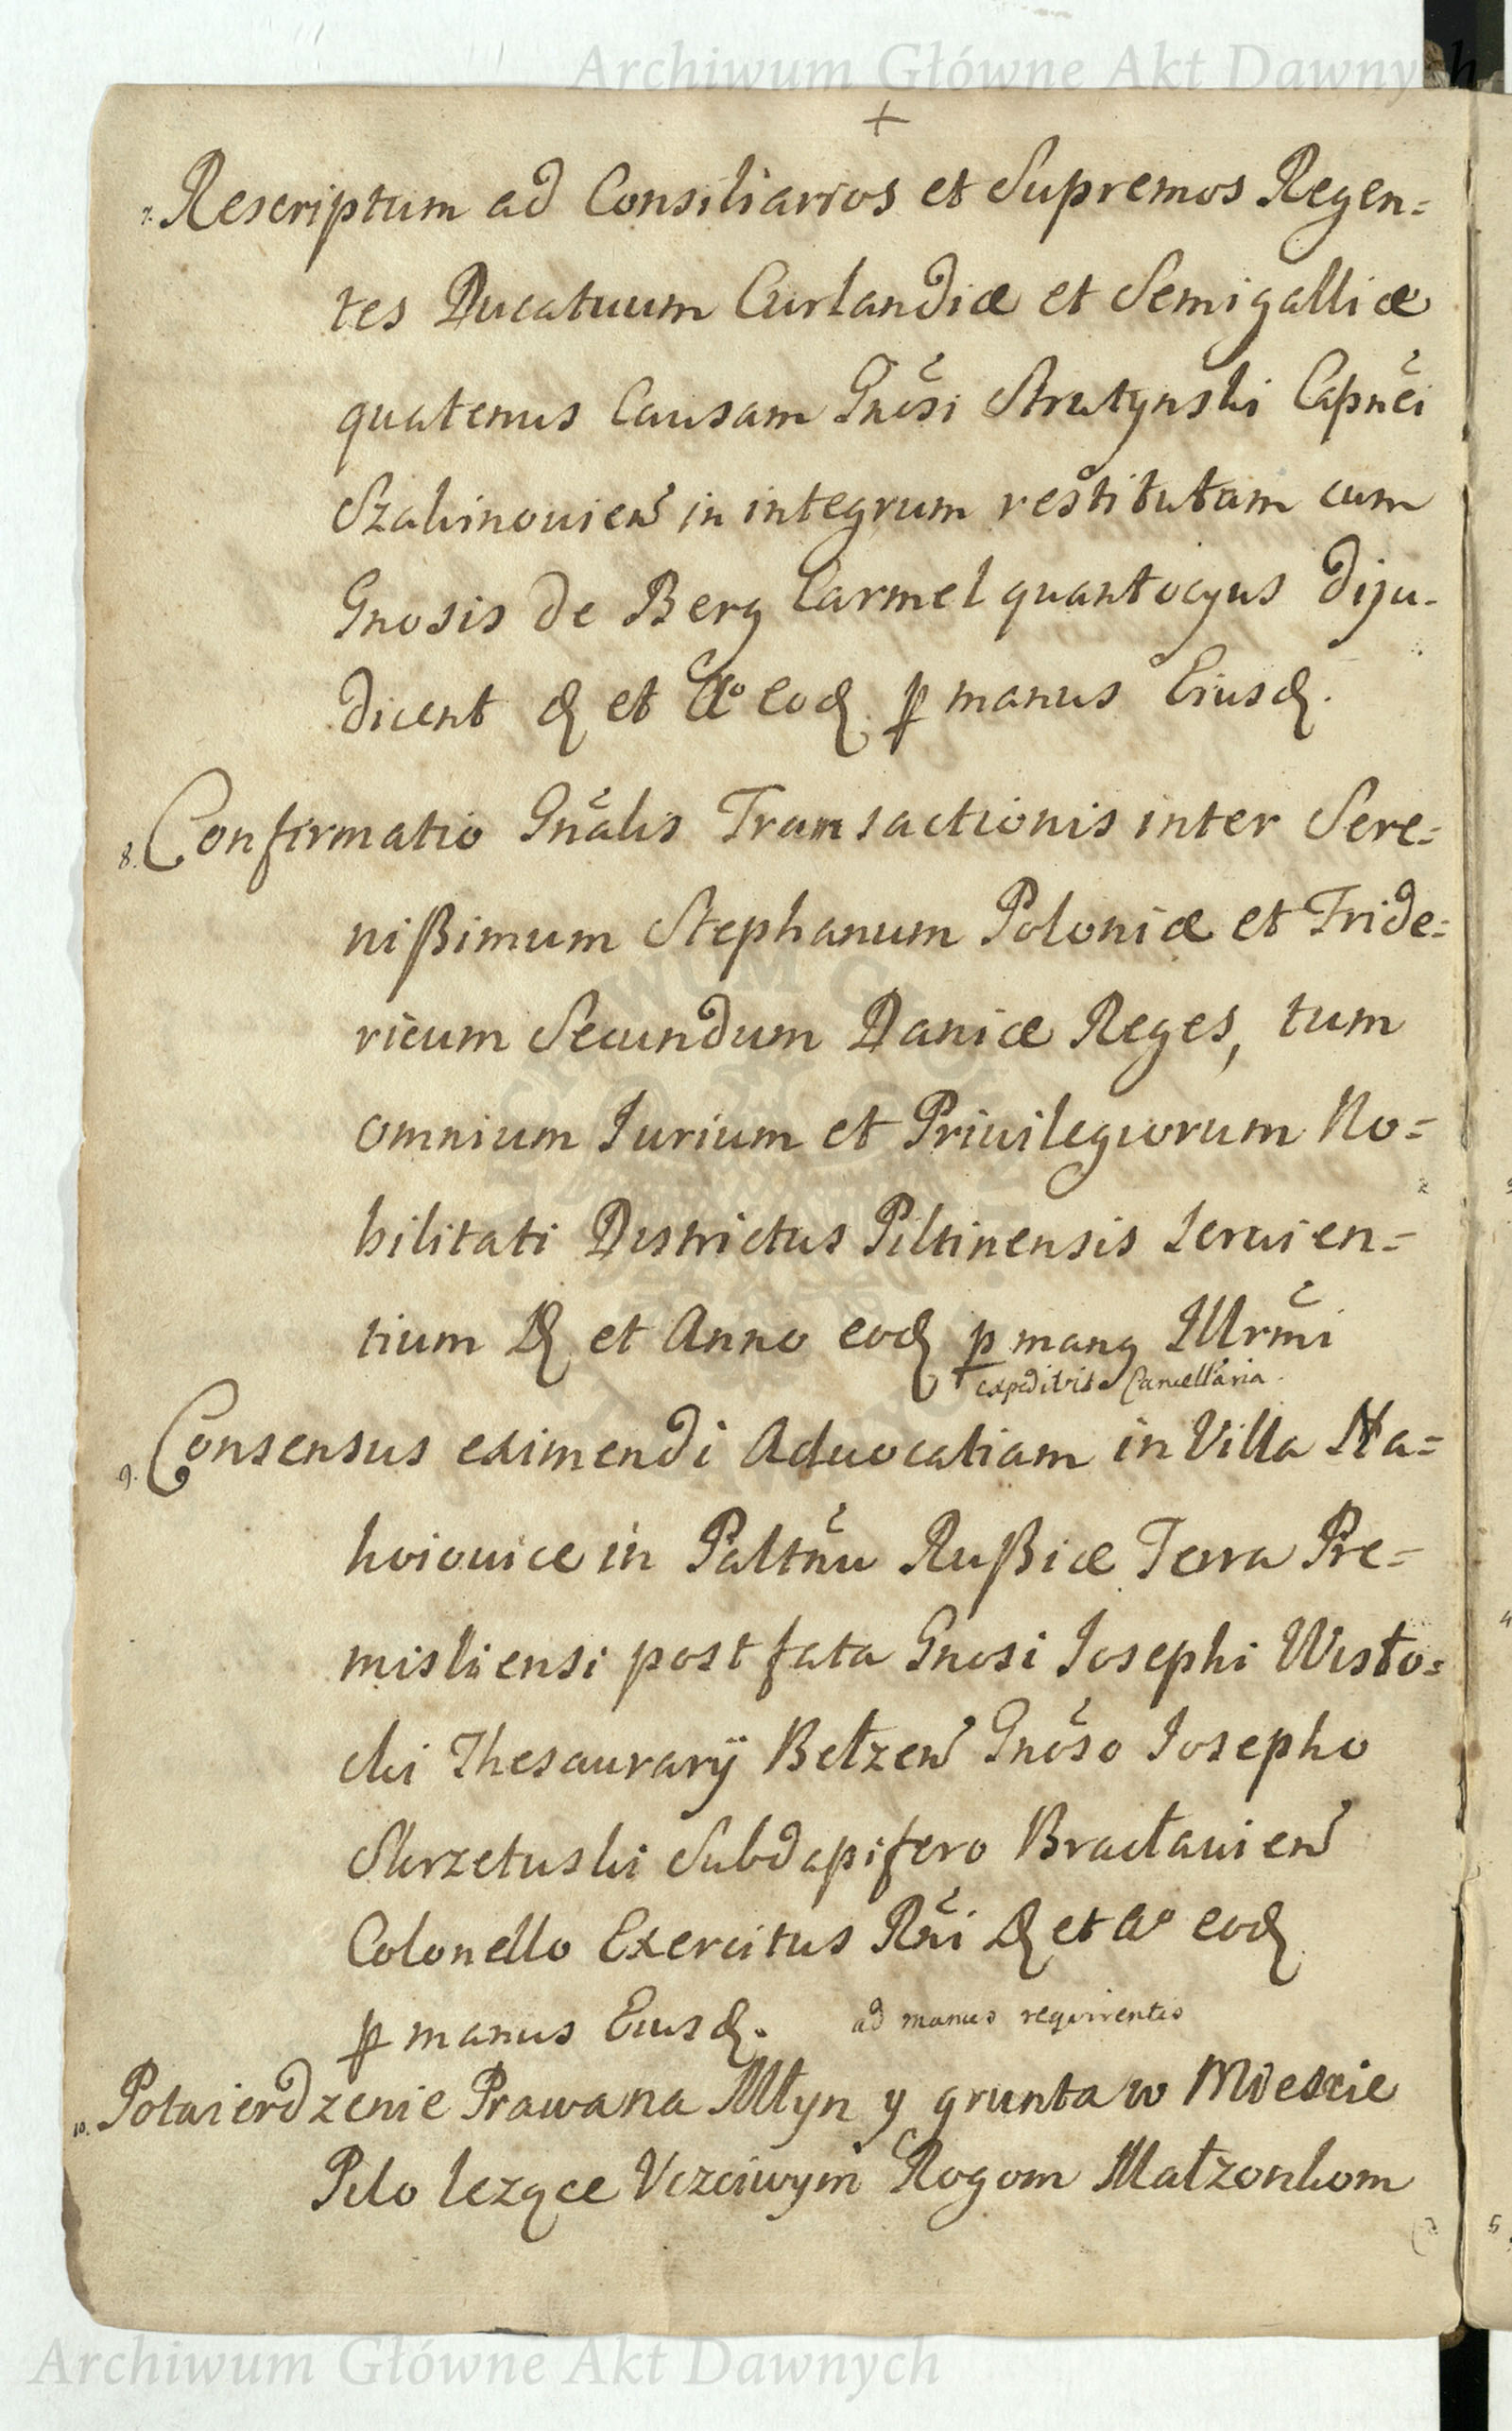 Archiwum Główne Akt Dawnych
+
7. Rescriptum ad Consiliarios et Supremos Regen=
tes Ducatuum Curlandiæ et Semigalliæ
quatenus Causam Gnosi Strutynski Capnei
Szakinovien in integrum restitutam cum
Gnosis de Berg Carmel quantocyus diju-
dicent d et Aº eod p manus Eiusd.
8. Confirmatio Gnalis Transactionis inter Sere=
nißimum Stephanum Poloniæ et Fride=
ricum Secundum Daniæ Reges, tum
omnium Iurium et Privilegiorum No=
bilitati Districtus Piltinensis servien=
tium D et Anno eod p manq Illrmi
expeditis Cancellaria
9. Consensus eximendi Advocatiam in Villa Na=
hoiovice in Paltnu Rußiæ Terra Pre=
misliensi post fata Gnosi Iosephi Wisło=
cki Thesaurarÿ Bełzen Gnoso Iosepho
Skrzetuski Subdapifero Bracławien
Colonello Exercitus Rni D et Aº eod
p manus Eiusd. ad manus requirentis
10. Potwierdzenie Prawa na Młyn y grunta w Miescie
Pilo lezące Uczciwym Rogom Małzonkom
Archiwum Główne Akt Dawnych